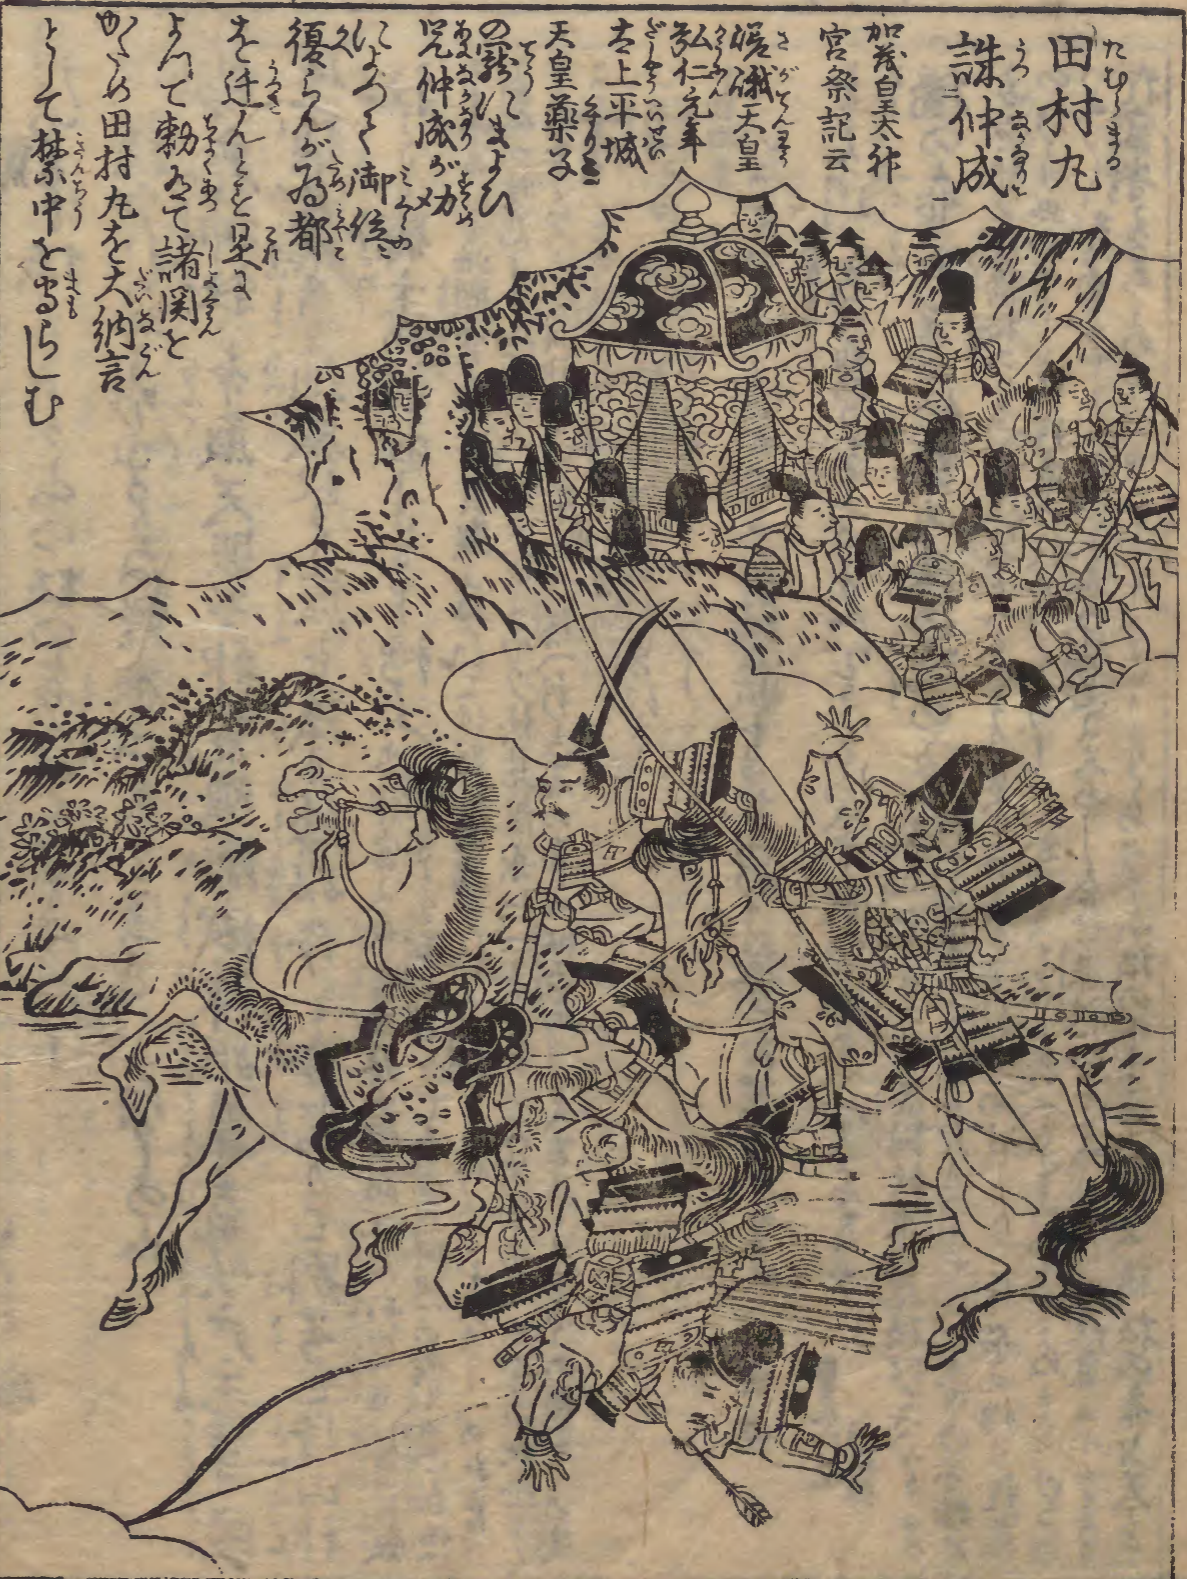 田村丸
誅仲成
加茂皇太神
宮祭記云
嵯峨天皇
弘仁元年
太上平城
天皇薬子
の寵にまよひ
兄仲成が勧
によつて御位に
復らんが為都
を迁んとす是に
よつて勅有て諸関を
かため田村丸を大納言
として禁中を守らしむ